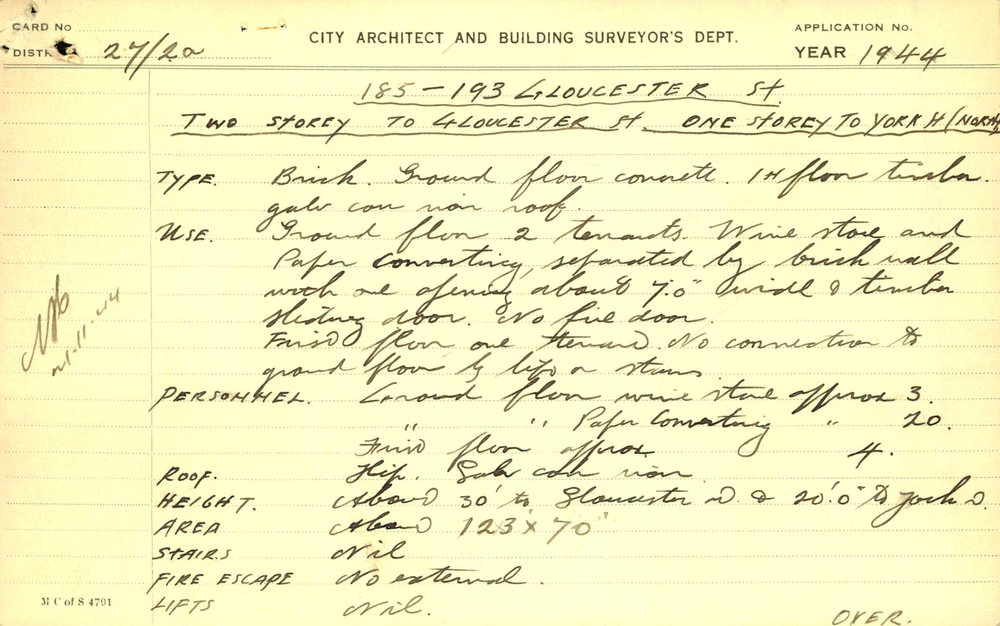 CARD NO
APPLICATION NO.
DISTR 27/2a
CITY ARCHITECT AND BUILDING SURVEYOR'S DEPT.
YEAR 1944
185 - 193 GLOUCESTER St.
TWO STOREY TO GLOUCESTER St. ONE STOREY TO YORK (NORTH)
TYPE. Brick. Ground floor concrete. 1st floor timber.
galv corr iron roof.
USE. Ground floor 2 tenants. Wine store and
Paper Converting, separated by brick wall
with one opening about 7.0" wide & timber
sliding door. No fire door.
First floor one tenant. No connection to
ground floor by lifts or stairs.
PERSONNEL. Ground floor wine store approx 3.
" " Paper Converting " 20.
First floor approx 4.
ROOF. Hip. Galv corr iron.
HEIGHT. About 30' to Gloucester St. & 20'.0" to York St.
AREA About 123' x 70'
STAIRS Nil
FIRE ESCAPE No external.
LIFTS Nil.
M C of S 4791
OVER.